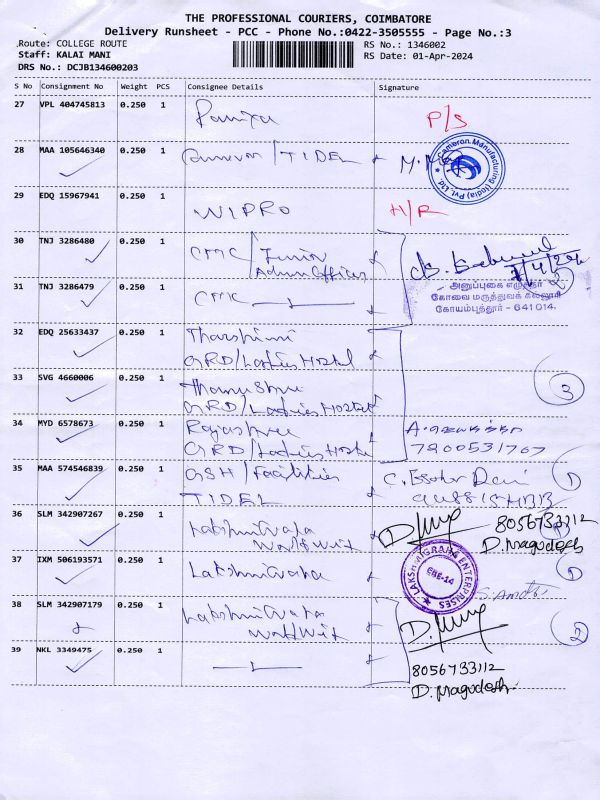 THE PROFESSIONAL COURIERS, COIMBATORE
Delivery Runsheet - PCC - Phone No.:0422-3505555 - Page No.:3
Route: COLLEGE ROUTE
RS No.: 1346002
Staff: KALAI MANI
RS Date: 01-Apr-2024
DRS No.: DCJB134600203
S No Consignment No Weight PCS Consignee Details Signature
27 VPL 404745813 0.250 1
P/S
28 MAA 105646340 0.250 1 / TIDEL
Cameron Manufacturing (India) Pvt. Ltd.
29 EDQ 15967941 0.250 1
WIPRO H/R
30 TNJ 3286480 0.250 1 CMC / Junior
Admin Officer
1/4/24
31 TNJ 3286479 0.250 1 CMC
2
அனுப்புகை எழுத்தர்
கோவை மருத்துவக் கல்லூரி
கோயம்புத்தூர் - 641 014.
32 EDQ 25633437 0.250 1 Tharshini
GRD/Ladies Hostel
33 SVG 4660006 0.250 1 Thanu Shree
GRD/Ladies Hostel
3
34 MYD 6578673 0.250 1 Rajashree
GRD/Ladies Hostel
7800531767
35 MAA 574546839 0.250 1 GSH/Facilities
TIDEL
1
36 SLM 342907267 0.250 1 Lakshmigraha
8056733112
D. Magudesh
37 IXM 506193571 0.250 1 Lakshmigraha
LAKSHMIGRAHA ENTERPRISES
CBE-14
1
38 SLM 342907179 0.250 1 Lakshmigraha
2
39 NKL 3349475 0.250 1
8056733112
D. Magudesh